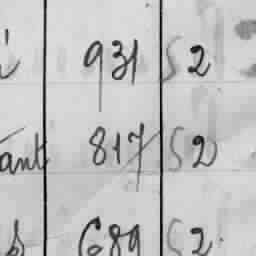 931 52
ant 817 52
689 52.